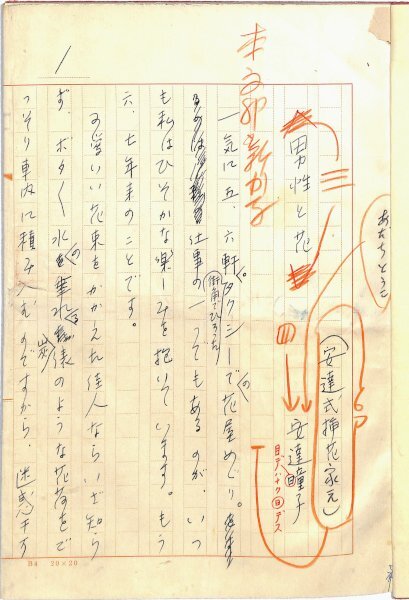 あだちとうこ
(安達式挿花家元)
安達瞳子
目デハナク日デス
四
男性と花
本文
新かな
一気に五、六軒。タクシーでの花屋めぐり。
仕事の一つでもあるのが、いつ
も私はひそかな楽しみを抱いています。もう
六、七年来のことです。
可愛いい花束をかかえた佳人ならいざ知ら
ず、ボタ〱水の 炭俵のような花荷をご
っそり車内に積みこむのですから、迷惑千万
1
B4 20×20